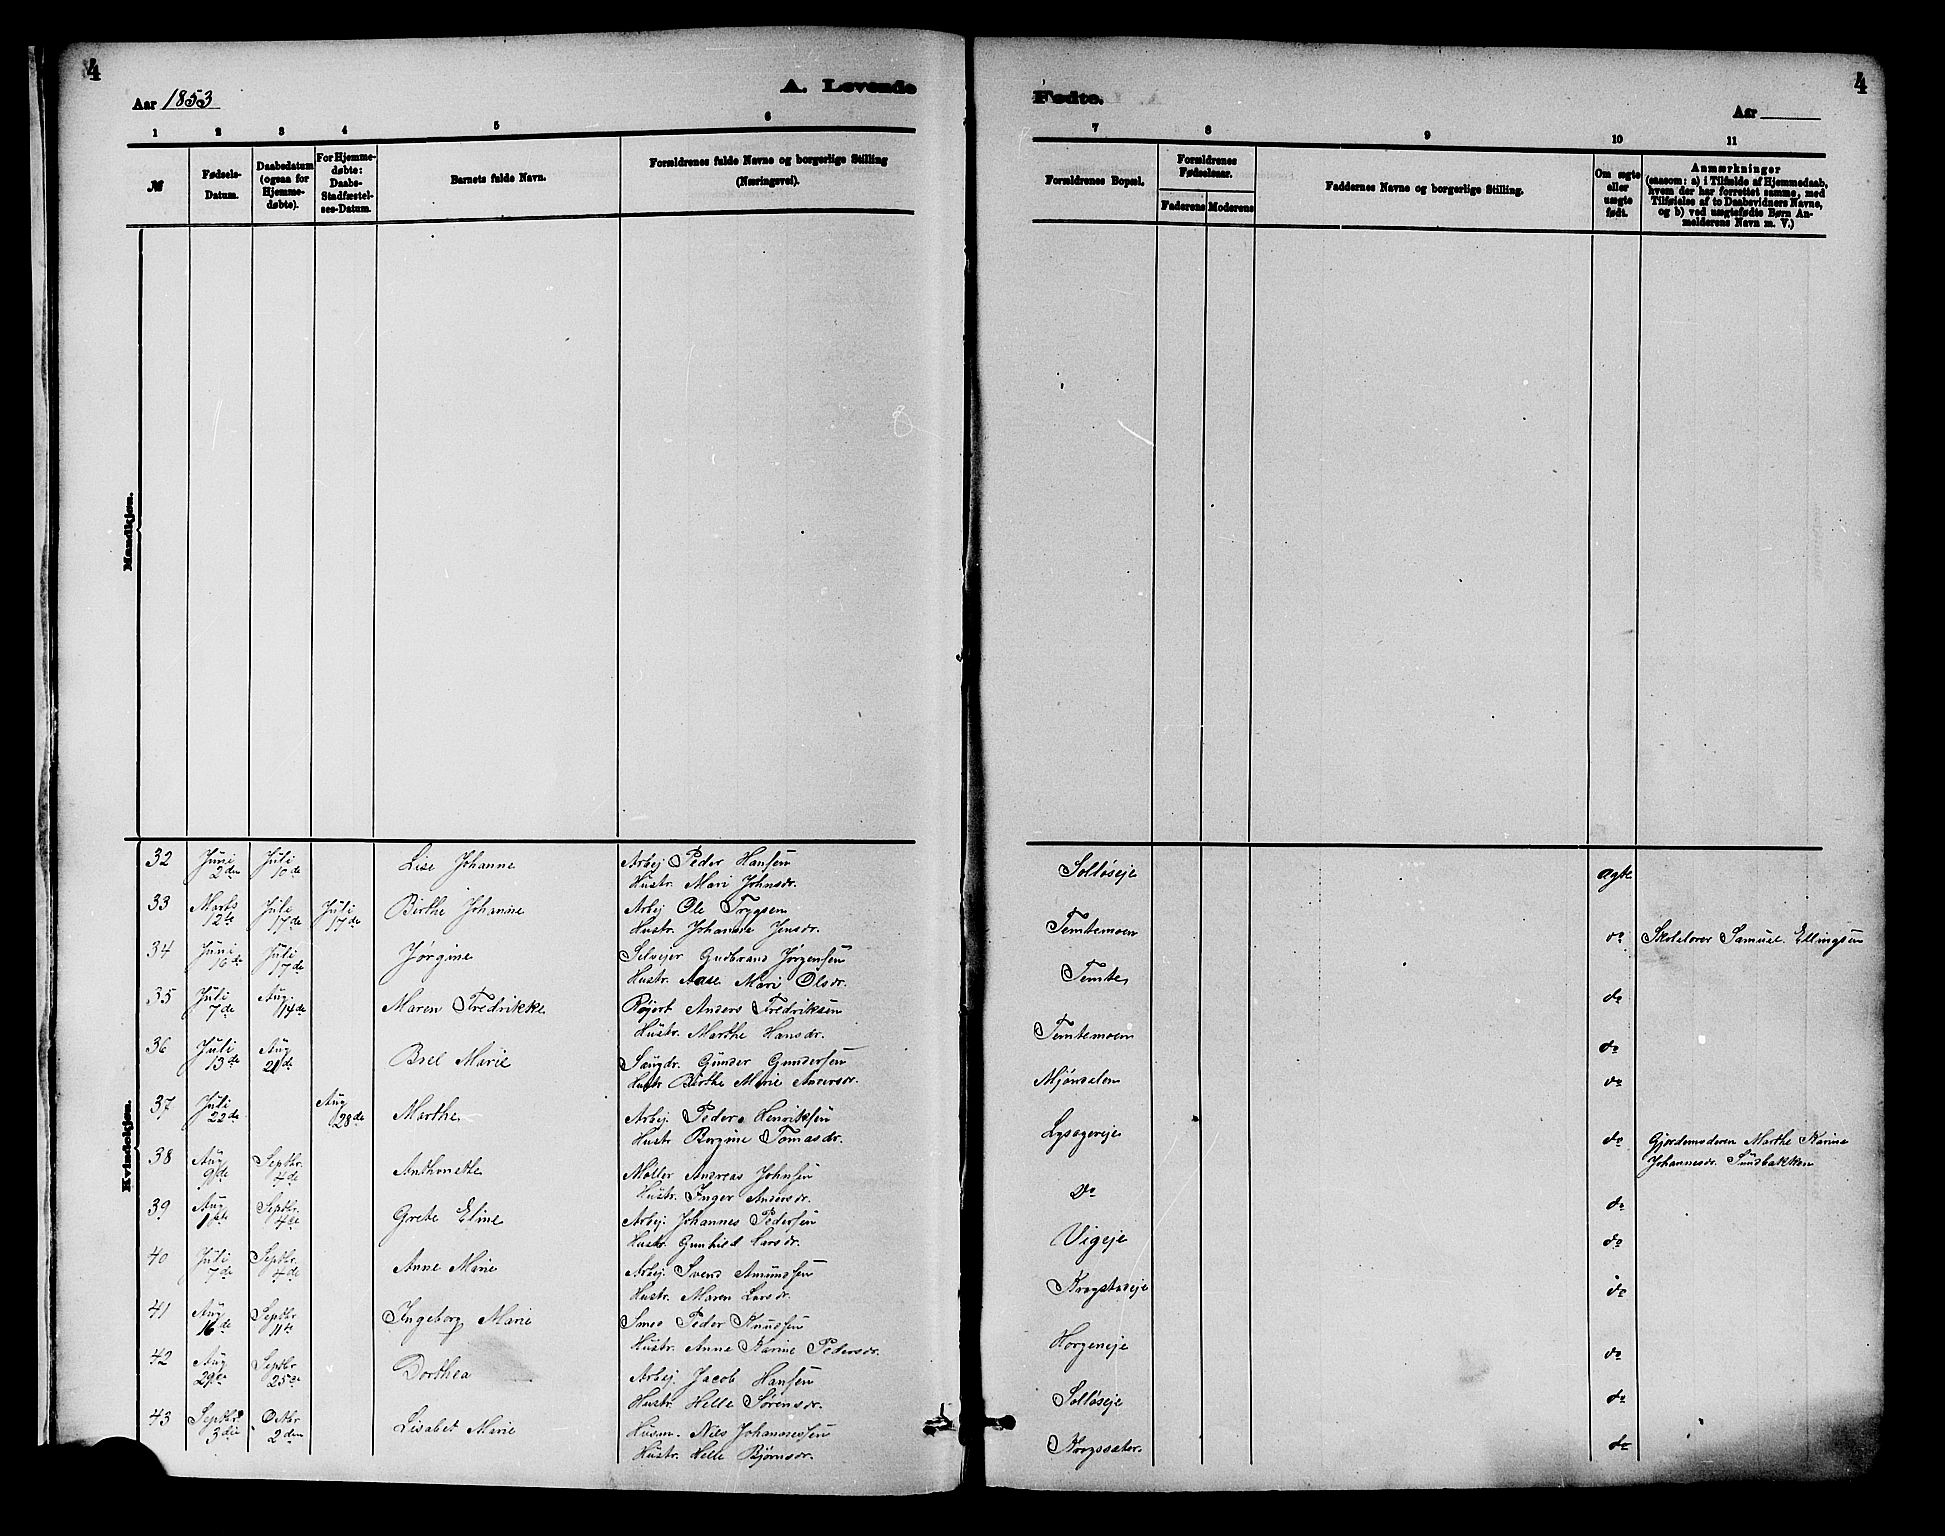 4
Aar 1853
A. Levende
1 2 3 4 5 6
№
Fødsels-Datum.
Daabsdatum (ogsaa for Hjemmedøbte).
For Hjemmedøbte: Daabs-Stadfæstelses-Datum.
Barnets fulde Navn.
Forældrenes fulde Navne og borgerlige Stilling (Næringsvei).
Mandkjøn.
Kvindekjøn.
32 Juni 2den Juli 10de Lise Johanne Arbej. Peder Hansen
Hustr. Mari Johnsdr.
33 Marts 12te Juli 17de Juli 17de Birthe Johanne Arbej Ole Trygsen
Hustr. Johanne Jensdr.
34 Juni 16de Juli 17de Jørgine Selvejer Gudbrand Jørgensen
Hustr. Aase Mari Olsdr.
35 Juli 7de Aug. 14de Maren Fredrikke Anders Fredriksen
Hustr. Marthe Hansdr.
36 Juli 13de Aug 21de Marie Saugdr. Gunder Gundersen
Hustr Birthe Marie Andersdr.
37 Juli 22de Aug 28de Marthe Arbej. Peder Henriksen
Hustr Bergine Tomasdr.
38 Aug 9de Septbr. 4de Anthonette Møller Andreas Johnsen
Hustr. Inger Andersdr.
39 Aug Septbr. 4de Grete Eline Arbej. Johannes Pedersen
Hustr. Gunhild Larsdr.
40 Juli 7de Septbr. 4de Anne Marie Arbej. Svend Amundsen
Hustr. Maren Larsdr.
41 Aug 16de Septbr 11te Ingeborg Marie Smed Peder Knudsen
Hustr. Anne Karine Pedersdr.
42 Aug 29de Septbr. 25de Dorthea Arbej. Jacob Hansen
Hustr. Helle Sørensdr.
43 Septbr. 3die Octbr 2den Lisabet Marie Husm. Nils Johannessen
Hustr. Helle Bjørnsdr.
Fødte.
Aar
4
7 8 9 10 11
Forældrenes Bopæl.
Forældrenes Fødselsaar.
Faderens Moderens
Faddernes Navne og borgerlige Stilling.
Om ægte eller uægte født.
Anmærkninger
(saasom: a) i Tilfælde af Hjemmedaab, hvem der har forrettet samme, med Tilføielse af to Daabsvidners Navne, og b) ved uægtefødte Børn Anmelderens Navn m. V.)
Solløseje ægte
Temtemoen do Skolelærer Samuel Ellingsen
Temte do
Temtemoen do
Mjøndalen do
Lysagereje do Gjordemoderen Marthe Karine
Johannesdr. Sundbakken
do do
Vigeje do
Krogstadeje do
Horgeneje do
Solløseje do
do